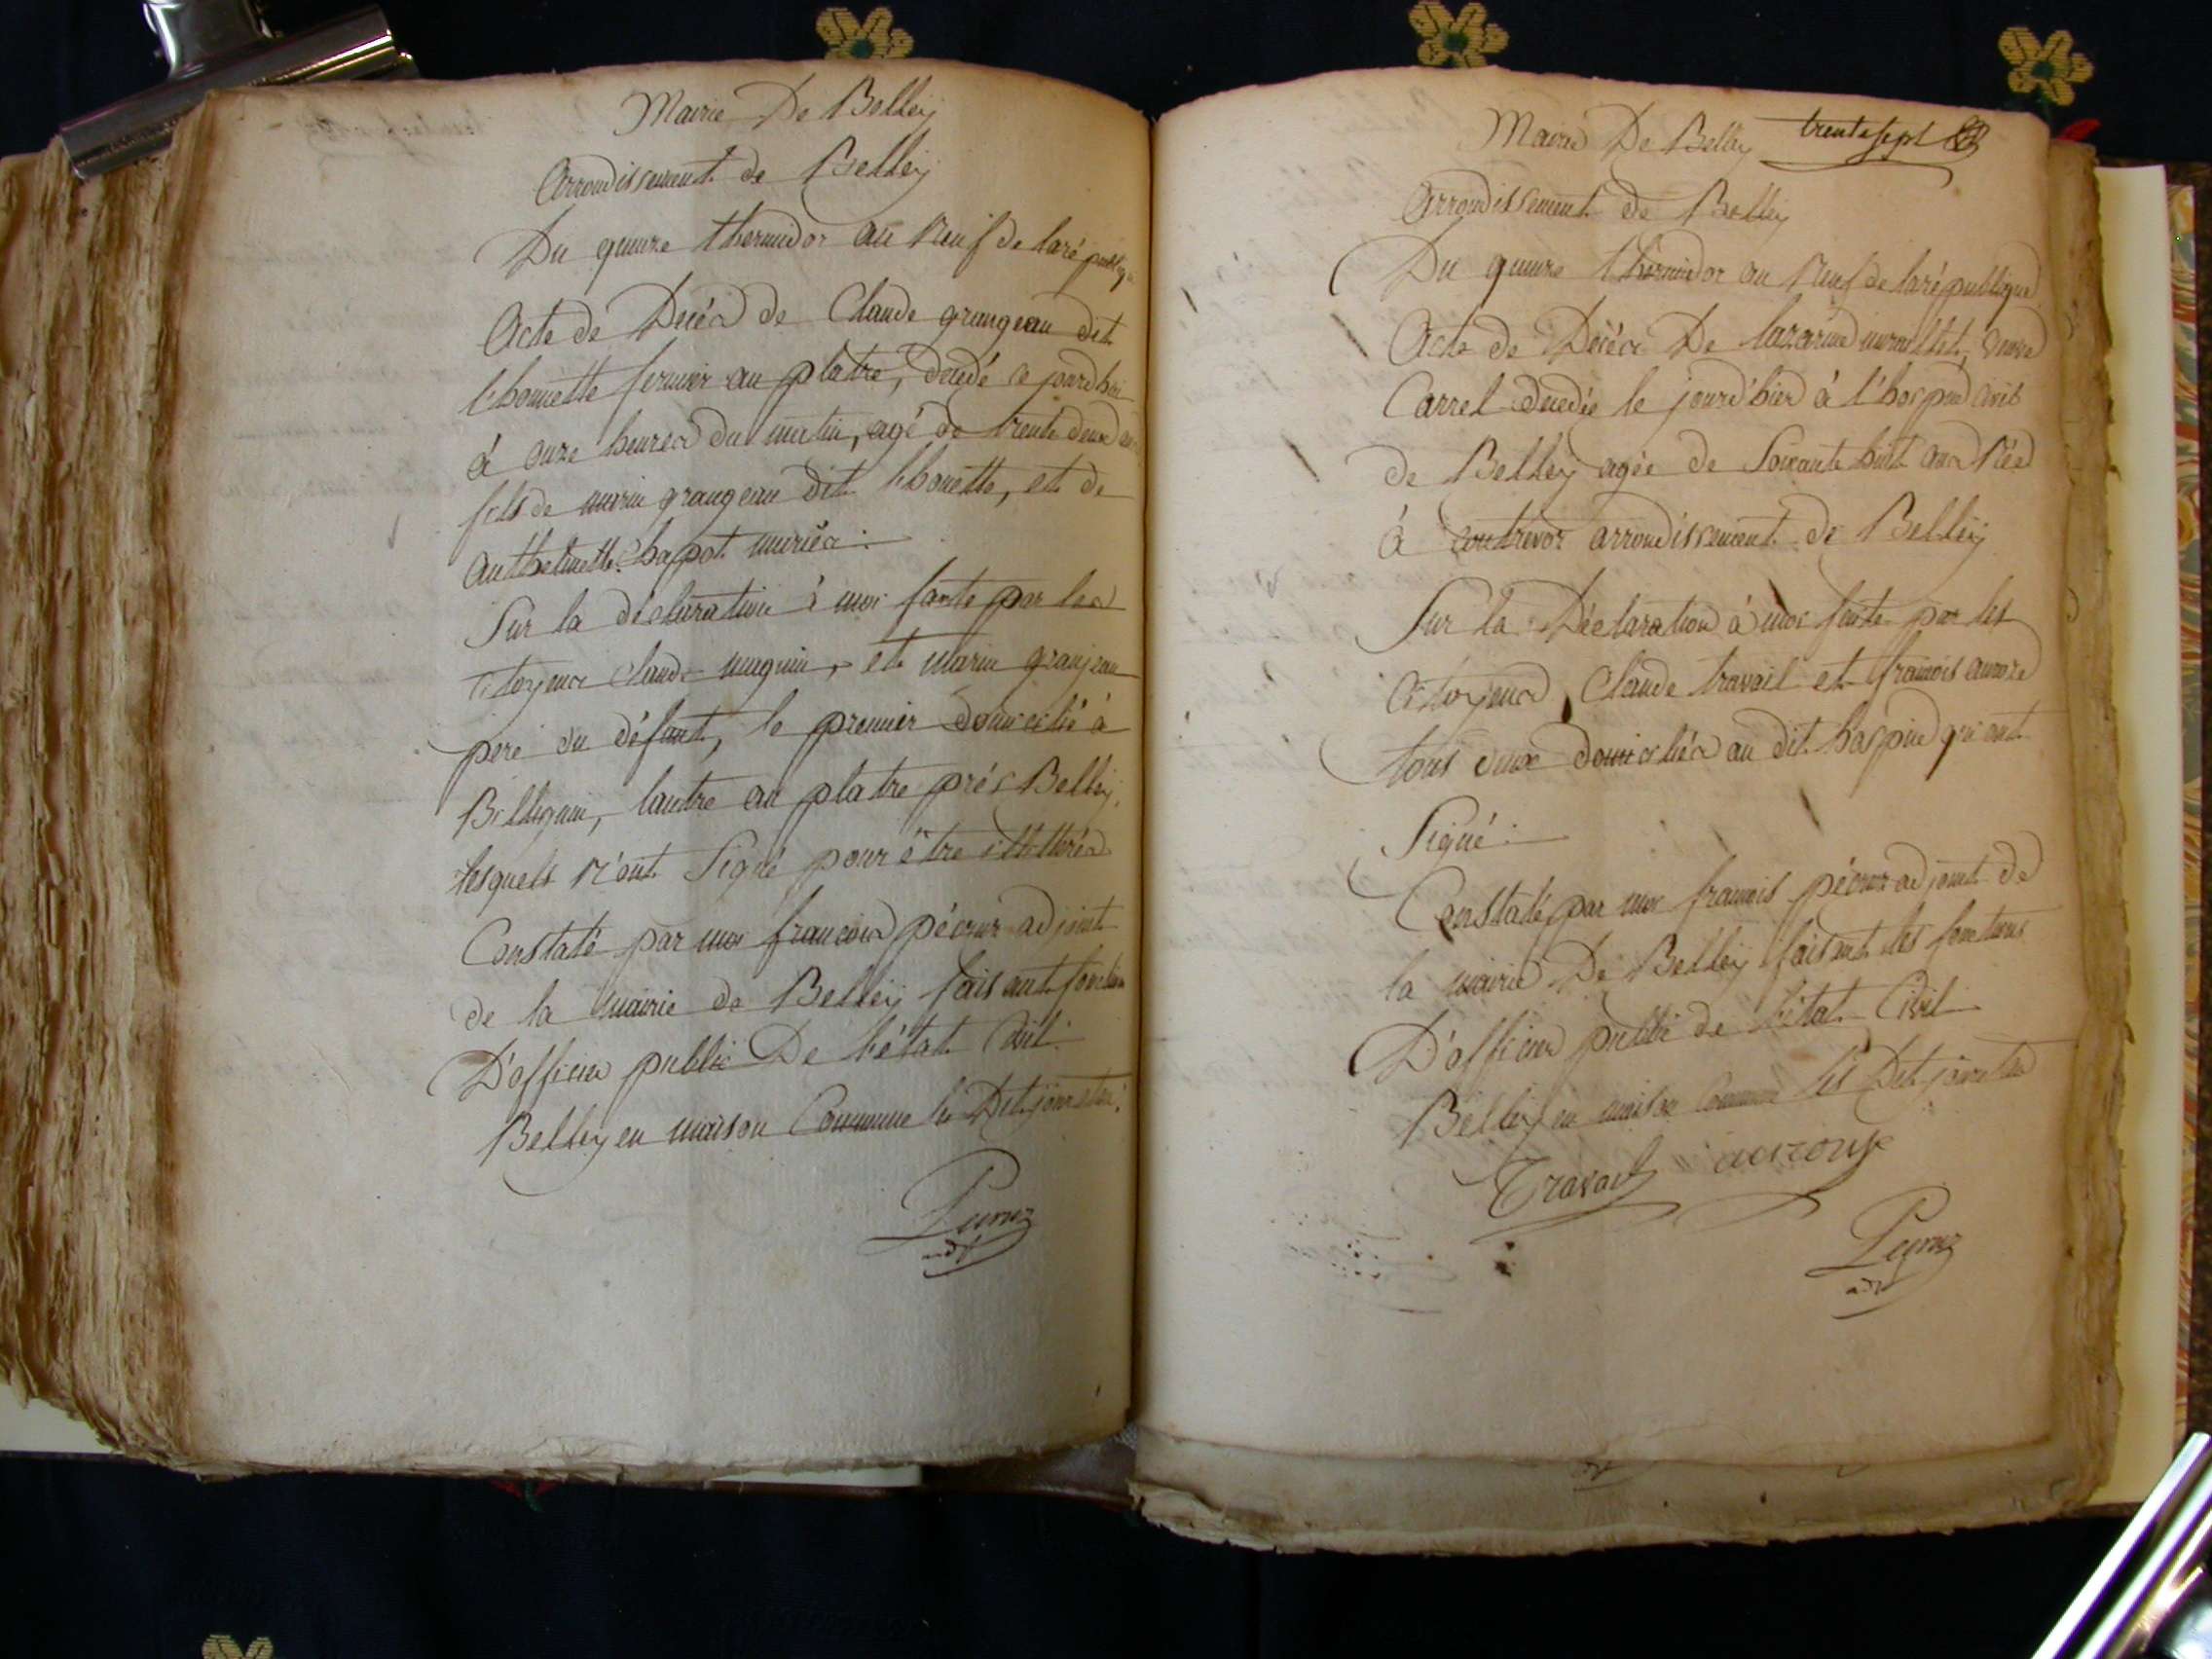 Mairie De Belley
Arrondissement de Belley
Du quinze thermidor an Neuf de la république
Acte de Décès de Claude grangeau dit
fermier au platre, decedé ce jourdhui
à onze heures du matin, agé de trente deux ans
fils de marin grangeau dit et de
Anthelmette Chapot mariés
Sur la déclaration à moi faite par les
Citoyens Claude muguin, et marin granjean
pere du défunt, le premier domicilié à
Billignin, lautre au platre prés Belley,
lesquels n'ont Signé pour être illétérés
Constaté par moi francois pécruz adjoint
de la mairie de Belley faisant fonction
D'officier public De l'état Civil
Belley en maison Commune les Dit jour et an
Pecruz
adjt
Mairie De Belley trente sept
Arrondissement de Belley
Du quinze thermidor an Neuf de la république
Acte de Décès De lazarine veuve
Carrel decedée le jourd'hier à l'hospice Civil
de Belley agée de Soixante huit ans Née
à contrevoz arrondissement de Belley
Sur la Déclaration à moi faite par les
Citoyens Claude travail et francois
tous deux domiciliés au dit hospice qui ont
Signé
Constaté par moi francois pécruz adjoint de
la mairie De Belley faisant les fonctions
D'officier public de l'état Civil
Belley en maison Commune les Dit jour et an
Travail
Pecruz
adjt